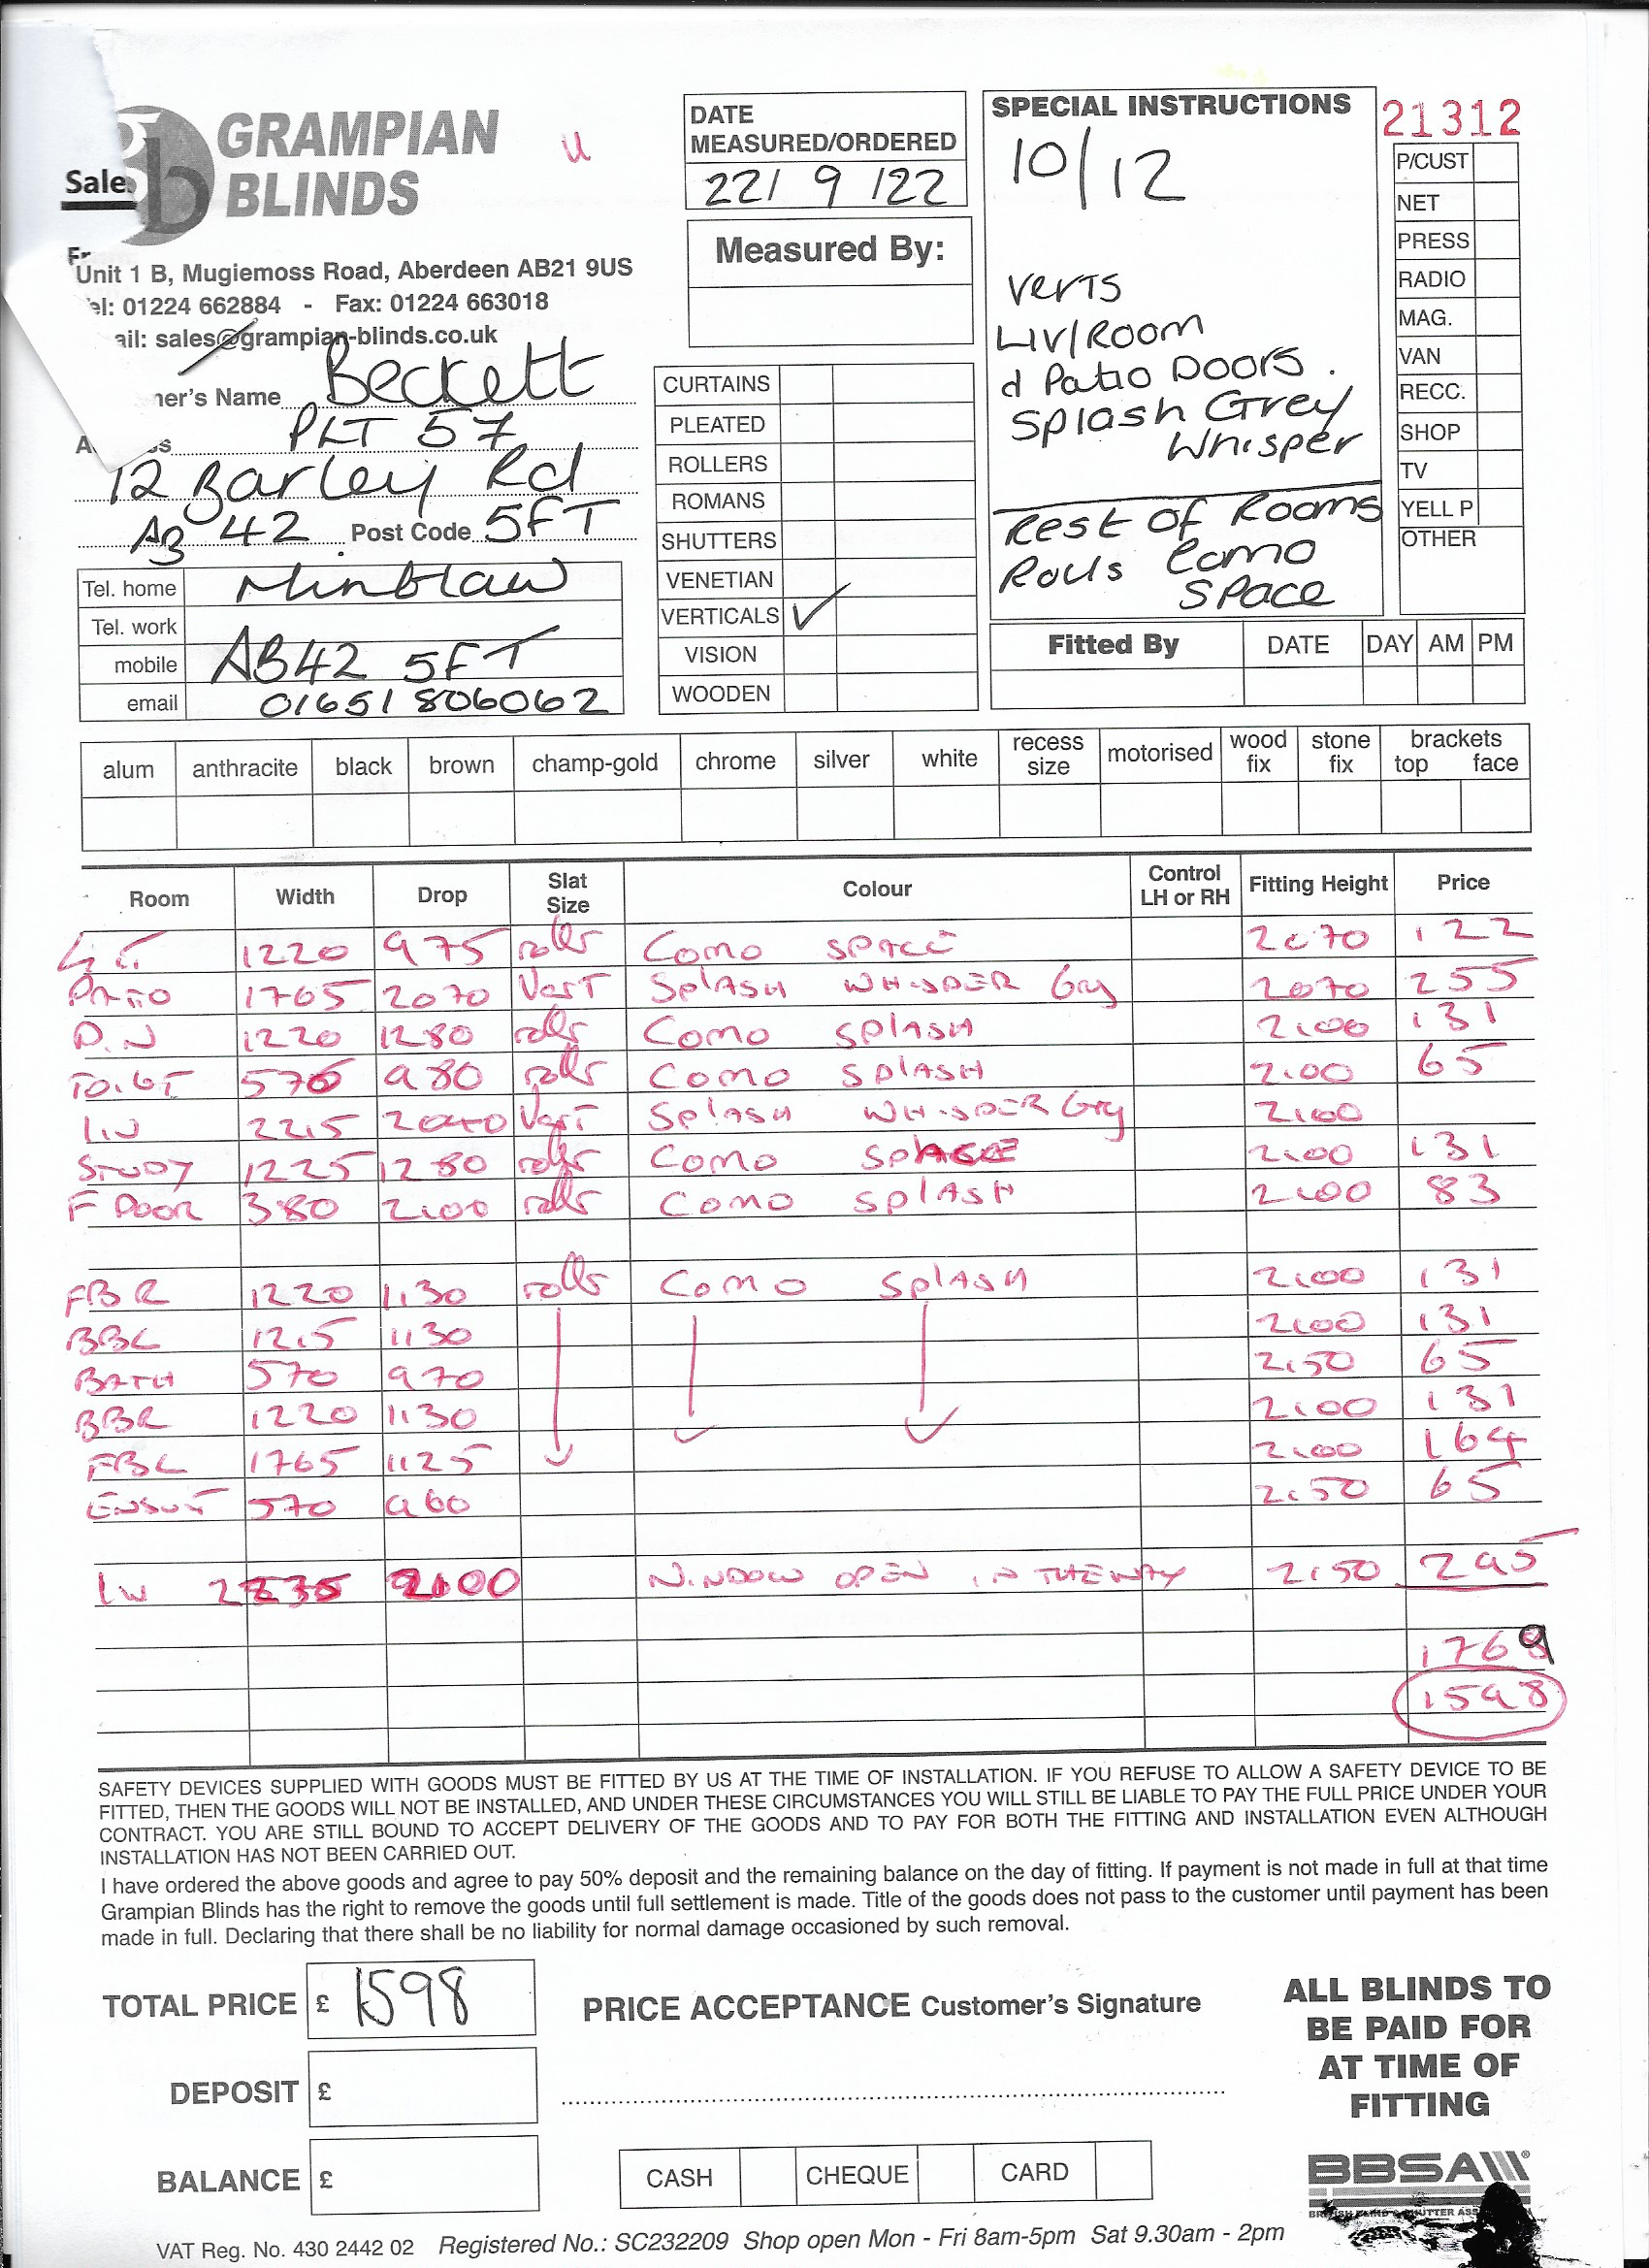 GRAMPIAN
BLINDS
Sale
u
Unit 1 B, Mugiemoss Road, Aberdeen AB21 9US
el: 01224 662884 - Fax: 01224 663018
ail: sales@grampian-blinds.co.uk
ner's Name Beckett
PLT 57
12 Barley Rd
AB 42 Post Code 5FT
Tel. home Mintlaw
Tel. work
mobile AB42 5FT
email 01651 806062
DATE
MEASURED/ORDERED
22/ 9 /22
Measured By:
CURTAINS
PLEATED
ROLLERS
ROMANS
SHUTTERS
VENETIAN
VERTICALS ✓
VISION
WOODEN
SPECIAL INSTRUCTIONS
10/12
Verts
Liv/Room
d Patio Doors.
Splash Grey
Whisper
Rest of Rooms
Rolls Como
Space
21312
P/CUST
NET
PRESS
RADIO
MAG.
VAN
RECC.
SHOP
TV
YELL P
OTHER
Fitted By DATE DAY AM PM
alum anthracite black brown champ-gold chrome silver white recess size motorised wood fix stone fix brackets top face
Room Width Drop Slat Size Colour Control LH or RH Fitting Height Price
1220 975 rolls Como SPACE 2070 122
PATIO 1765 2070 VerT SPlASH WHISPER Gry 2070 255
D.N 1220 1280 rolls Como SPlASH 2100 131
TOILET 576 980 rolls Como SPlASH 2100 65
LIV 2215 2040 VerT SPlASH WHISPER Gry 2100
STUDY 1225 1280 rolls Como SPACE 2100 131
F DOOR 380 2100 rolls Como SPlASH 2100 83
FBR 1220 1130 rolls Como SPlASH 2100 131
BBL 1215 1130 2100 131
BATH 570 970 2150 65
BBR 1220 1130 2100 131
FBL 1765 1125 2100 164
ENSUT 570 960 2150 65
LIV 2235 2100 WINDOW OPEN IN THE WAY 2150 295
1769
1598
SAFETY DEVICES SUPPLIED WITH GOODS MUST BE FITTED BY US AT THE TIME OF INSTALLATION. IF YOU REFUSE TO ALLOW A SAFETY DEVICE TO BE
FITTED, THEN THE GOODS WILL NOT BE INSTALLED, AND UNDER THESE CIRCUMSTANCES YOU WILL STILL BE LIABLE TO PAY THE FULL PRICE UNDER YOUR
CONTRACT. YOU ARE STILL BOUND TO ACCEPT DELIVERY OF THE GOODS AND TO PAY FOR BOTH THE FITTING AND INSTALLATION EVEN ALTHOUGH
INSTALLATION HAS NOT BEEN CARRIED OUT.
I have ordered the above goods and agree to pay 50% deposit and the remaining balance on the day of fitting. If payment is not made in full at that time
Grampian Blinds has the right to remove the goods until full settlement is made. Title of the goods does not pass to the customer until payment has been
made in full. Declaring that there shall be no liability for normal damage occasioned by such removal.
TOTAL PRICE £ 1598
PRICE ACCEPTANCE Customer's Signature
DEPOSIT £
BALANCE £
CASH CHEQUE CARD
ALL BLINDS TO
BE PAID FOR
AT TIME OF
FITTING
BBSA
VAT Reg. No. 430 2442 02 Registered No.: SC232209 Shop open Mon - Fri 8am-5pm Sat 9.30am - 2pm